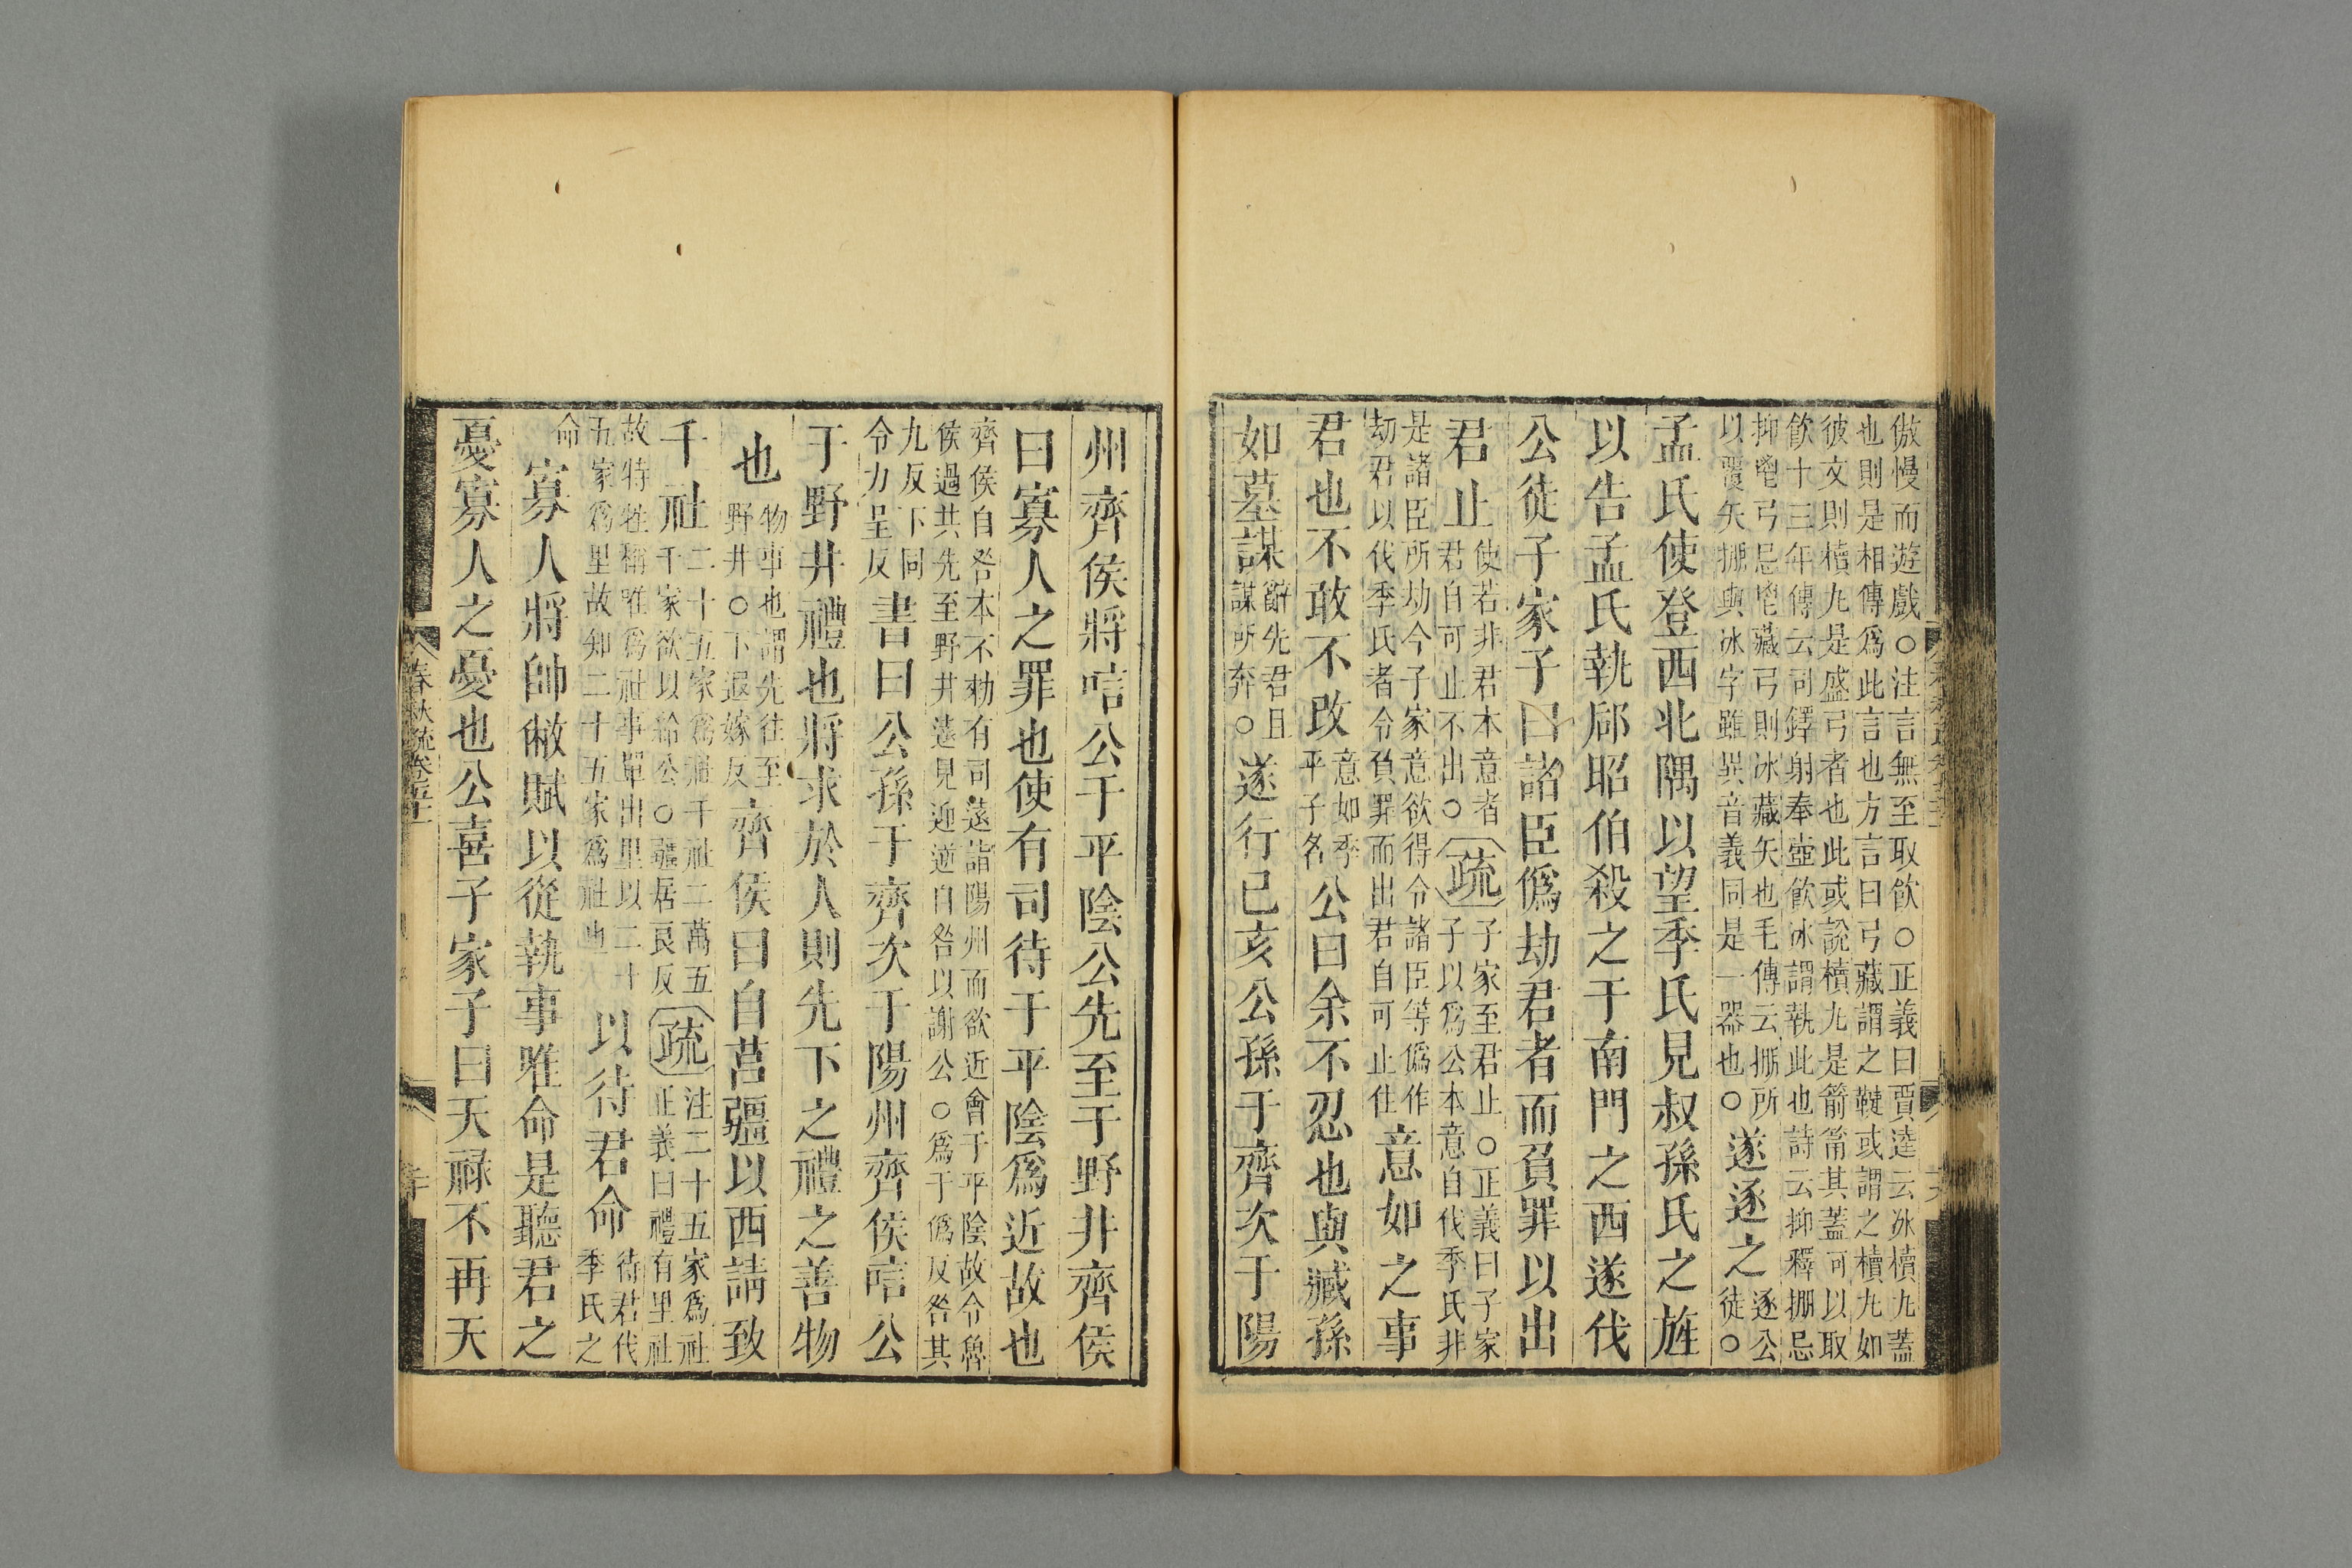 傲慢而遊戲○注言無至取飲○正義曰賈逵云冰櫝丸蓋
也則是相傳爲此言也方言曰弓藏謂之鞬或謂之櫝丸如
彼文則櫝丸是盛弓者也此或說櫝丸是箭筩其蓋可以取
飲十三年傳云司鐸射奉壺飲冰謂執此也詩云抑釋掤忌
抑鬯弓忌鬯藏弓則冰藏矢也毛傳云掤所
以覆矢掤與冰字雖異音義同是一器也○
遂逐之
逐公
徒○
孟氏使登西北隅以望季氏見叔孫氏之旌
以告孟氏執郈昭伯殺之于南門之西遂伐
公徒子家子曰諸臣僞劫君者而負罪以出
君止
使若非君本意者
君自可止不出○
疏
子家至君止○正義曰子家
子以爲公本意自伐季氏非
是諸臣所劫今子家意欲得令諸臣等僞作
劫君以伐季氏者令負罪而出君自可止住
意如之事
君也不敢不改
意如季
平子名
公曰余不忍也與臧孫
如墓謀
辭先君且
謀所奔○
遂行己亥公孫于齊次于陽
州齊侯將唁公于平陰公先至于野井齊侯
曰寡人之罪也使有司待于平陰爲近故也
齊侯自咎本不勑有司遠詣陽州而欲近會于平陰故令魯
侯過共先至野井遠見迎逆自咎以謝公○爲于僞反咎其
九反下同
令力呈反
書曰公孫于齊次于陽州齊侯唁公
于野井禮也將求於人則先下之禮之善物
也
物事也謂先往至
野井○下遐嫁反
齊侯曰自莒疆以西請致
千社
二十五家爲社千社二萬五
千家欲以給公○疆居良反
疏
注二十五家爲社
正義曰禮有里社
故特牲稱唯爲社事單出里以二十
五家爲里故知二十五家爲社也
以待君命
待君伐
季氏之
命
寡人將帥敝賦以從執事唯命是聽君之
憂寡人之憂也公喜子家子曰天祿不再天
春秋疏卷五十一